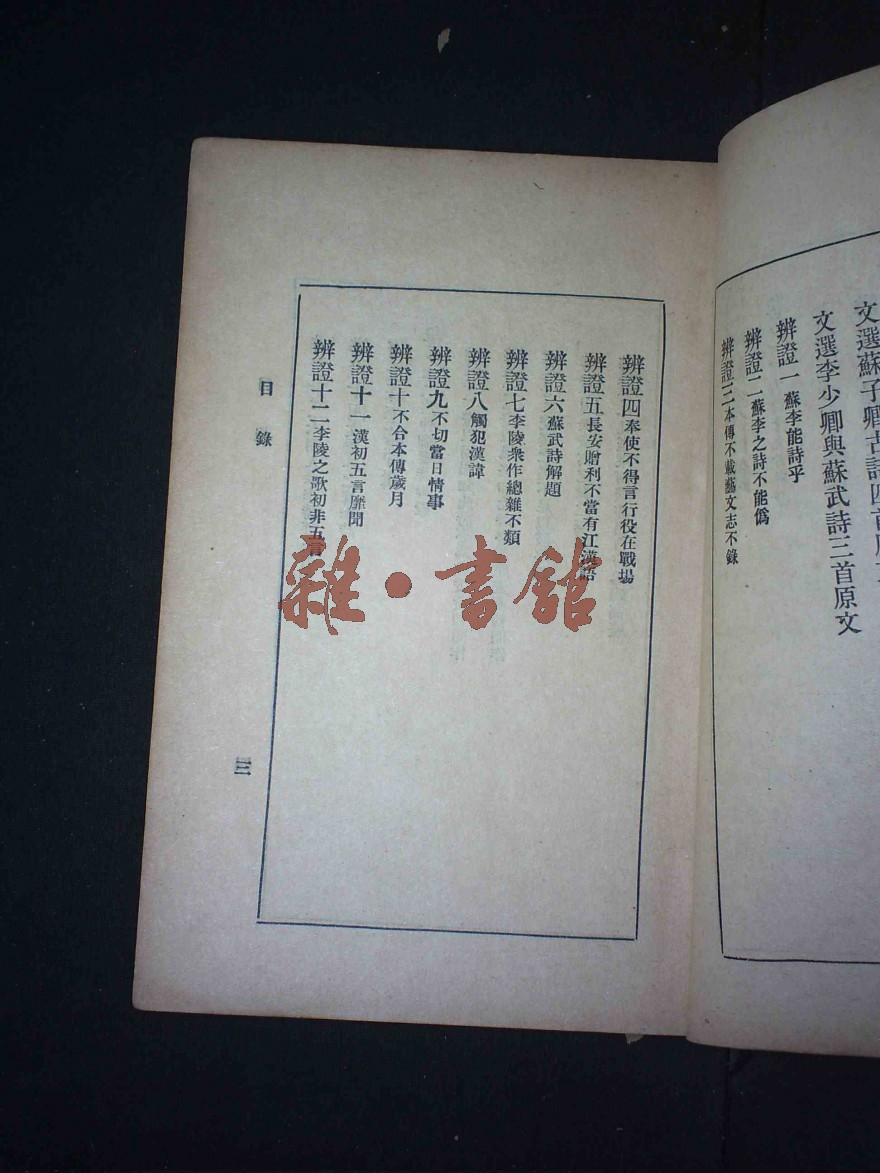 文選蘇子卿古詩四首原
文選李少卿與蘇武詩三首原文
辨證一 蘇李能詩乎
辨證二 蘇李之詩不能偽
辨證三 本傳不載藝文志不錄
辨證四 奉使不得言行役在戰場
辨證五 長安贈別不當有江漢語
辨證六 蘇武詩解題
辨證七 李陵衆作總雜不類
辨證八 觸犯漢諱
辨證九 不切當日情事
辨證十 不合本傳歲月
辨證十一 漢初五言靡聞
辨證十二 李陵之歌初非五言
目錄
三
雜·書館